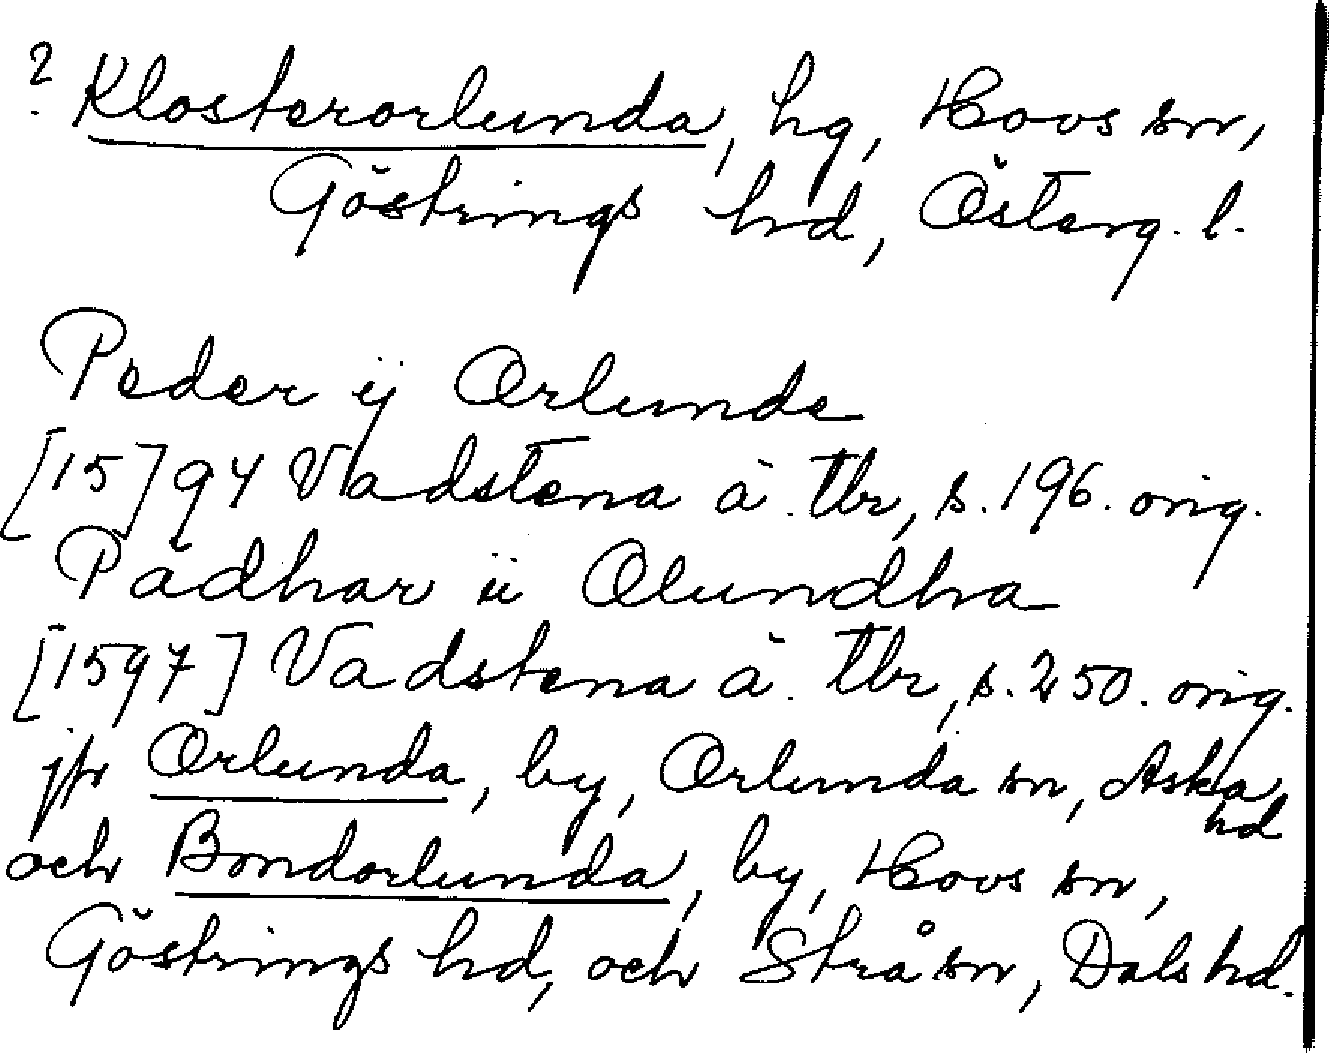 ? Klosterorlunda, hg, Hovs sn,
Göstrings hd, Österg. l.
Peder ij Orlunde
[15]94 Vadstena ä. tbr, s. 196. orig.
Pädhar ii Olundha
[1597] Vadstena ä. tbr, s. 250. orig.
jfr Orlunda, by, Orlunda sn, Aska
hd
och Bondorlunda, by, Hovs sn,
Göstrings hd, och Strå sn, Dals hd.